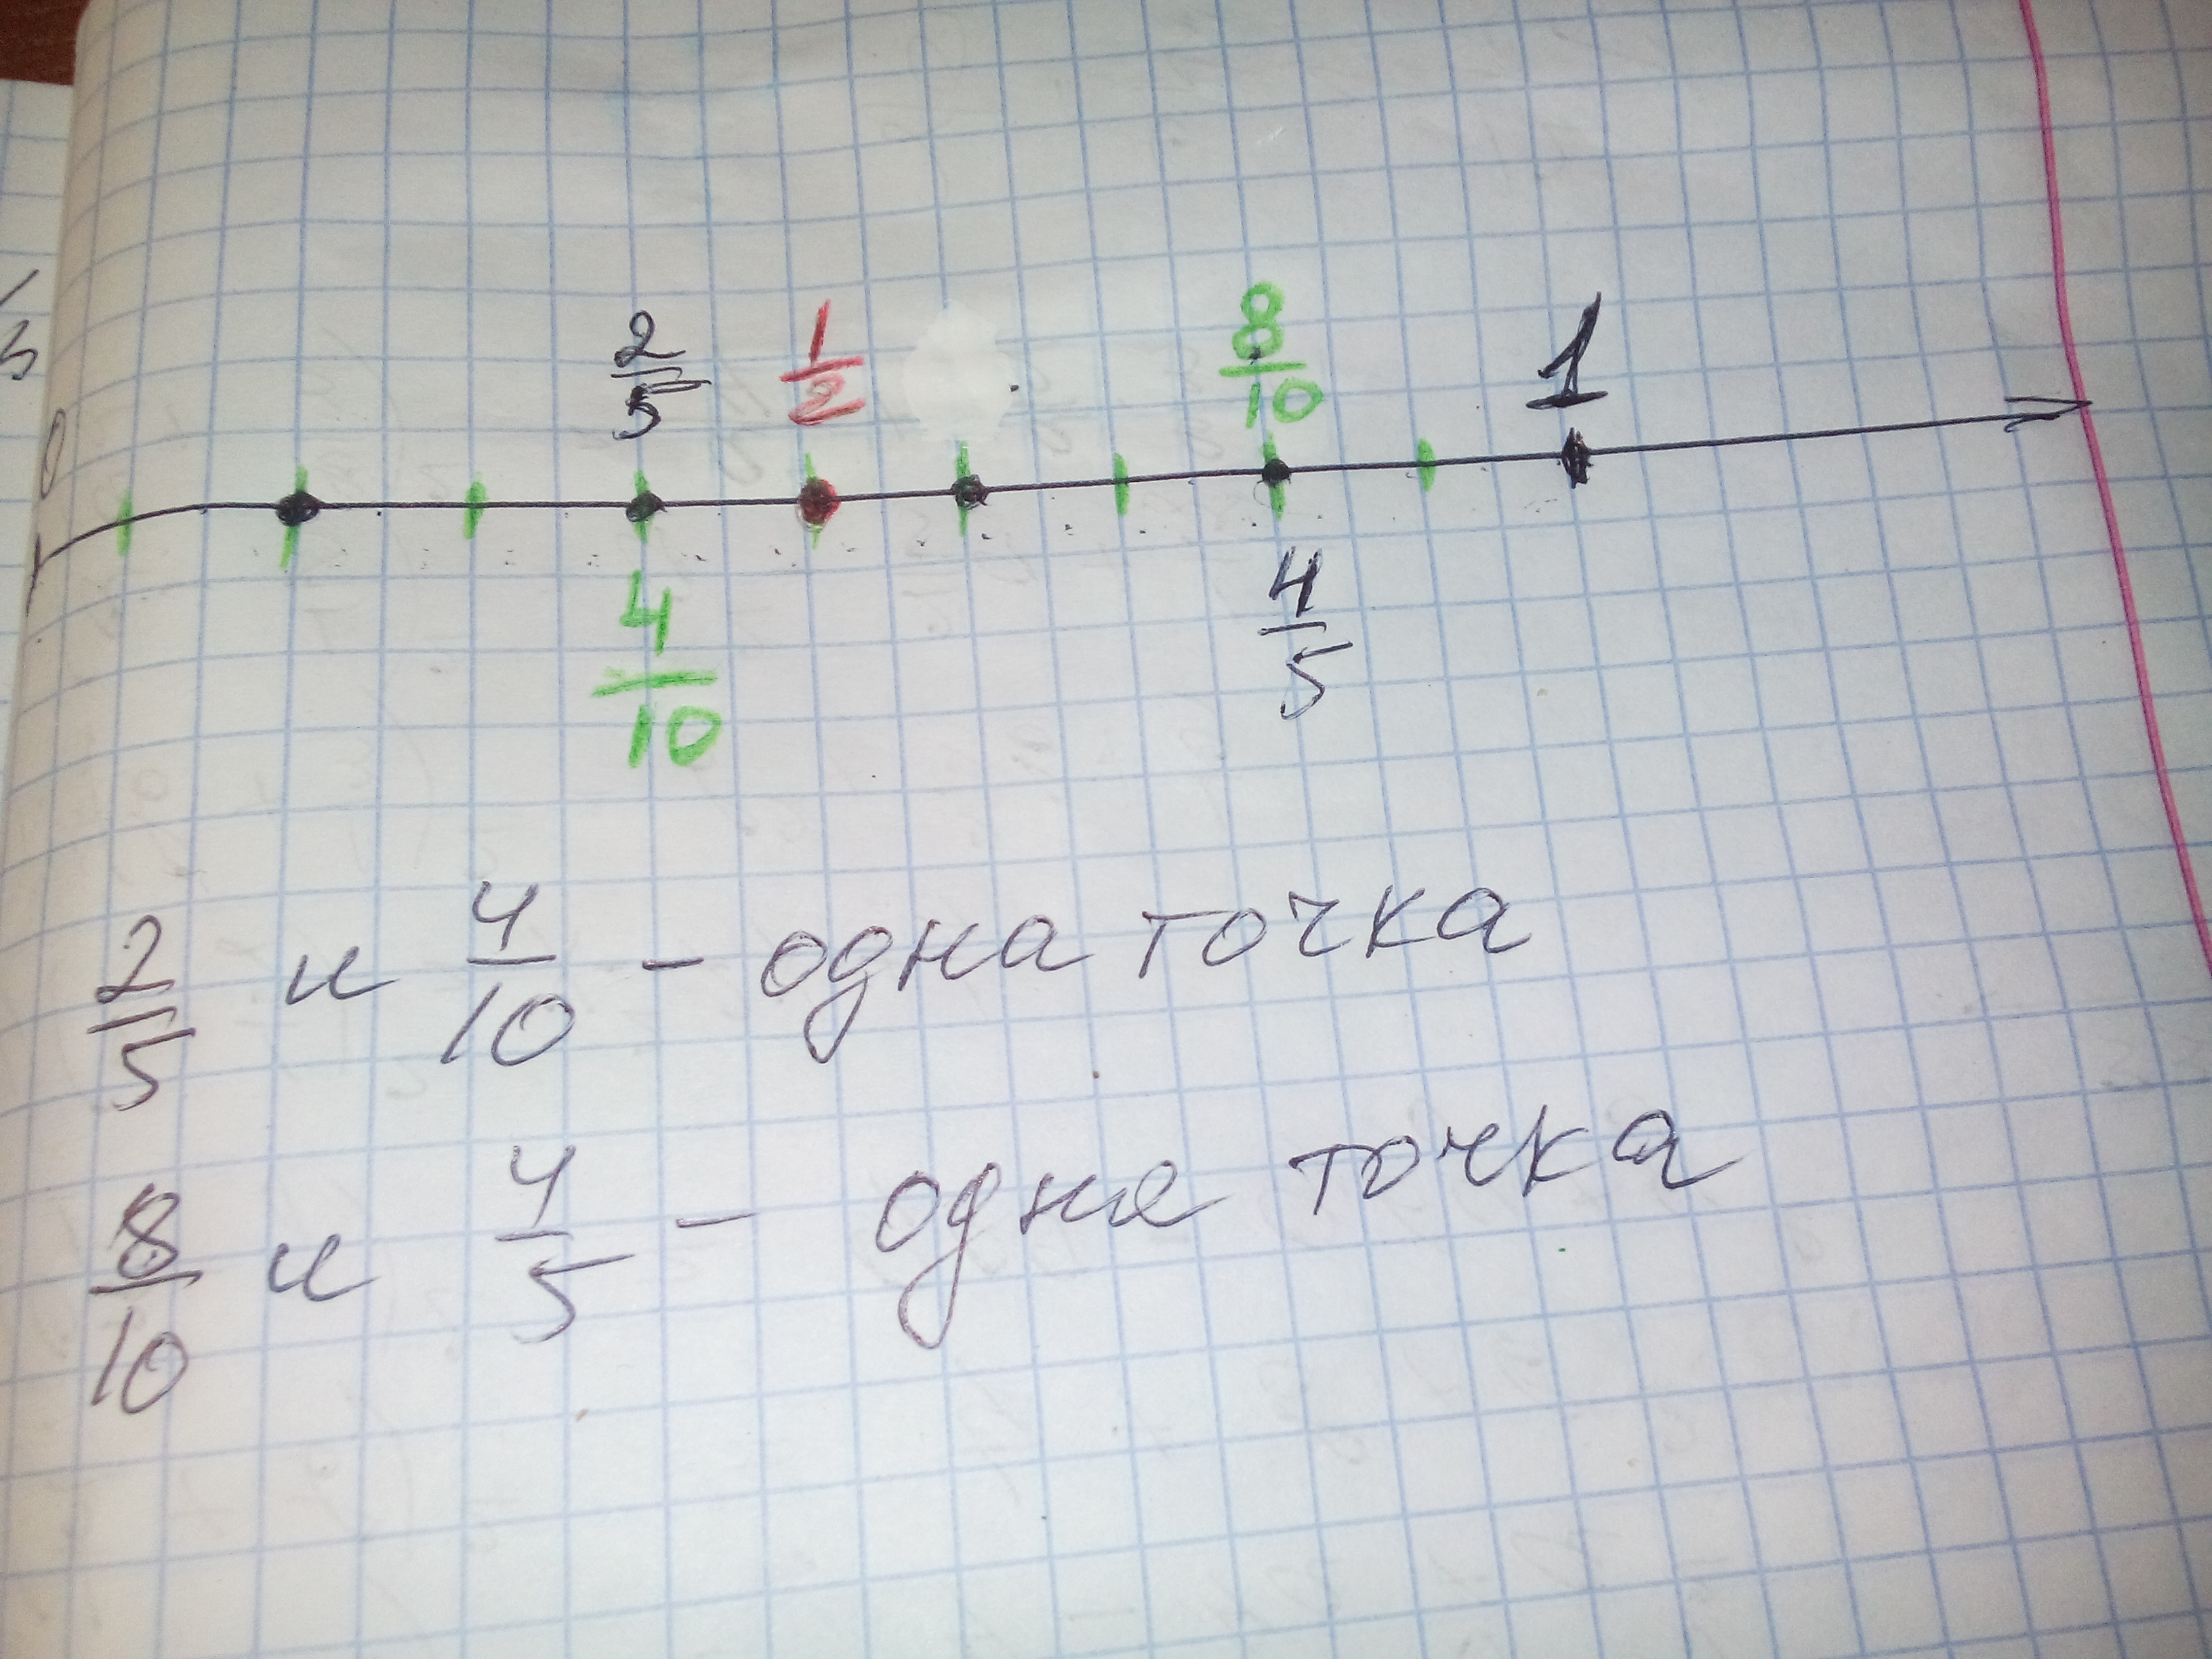 0 2/5 1/2 8/10 1
4/10 4/5
2/5 и 4/10 - одна точка
8/10 и 4/5 - одна точка